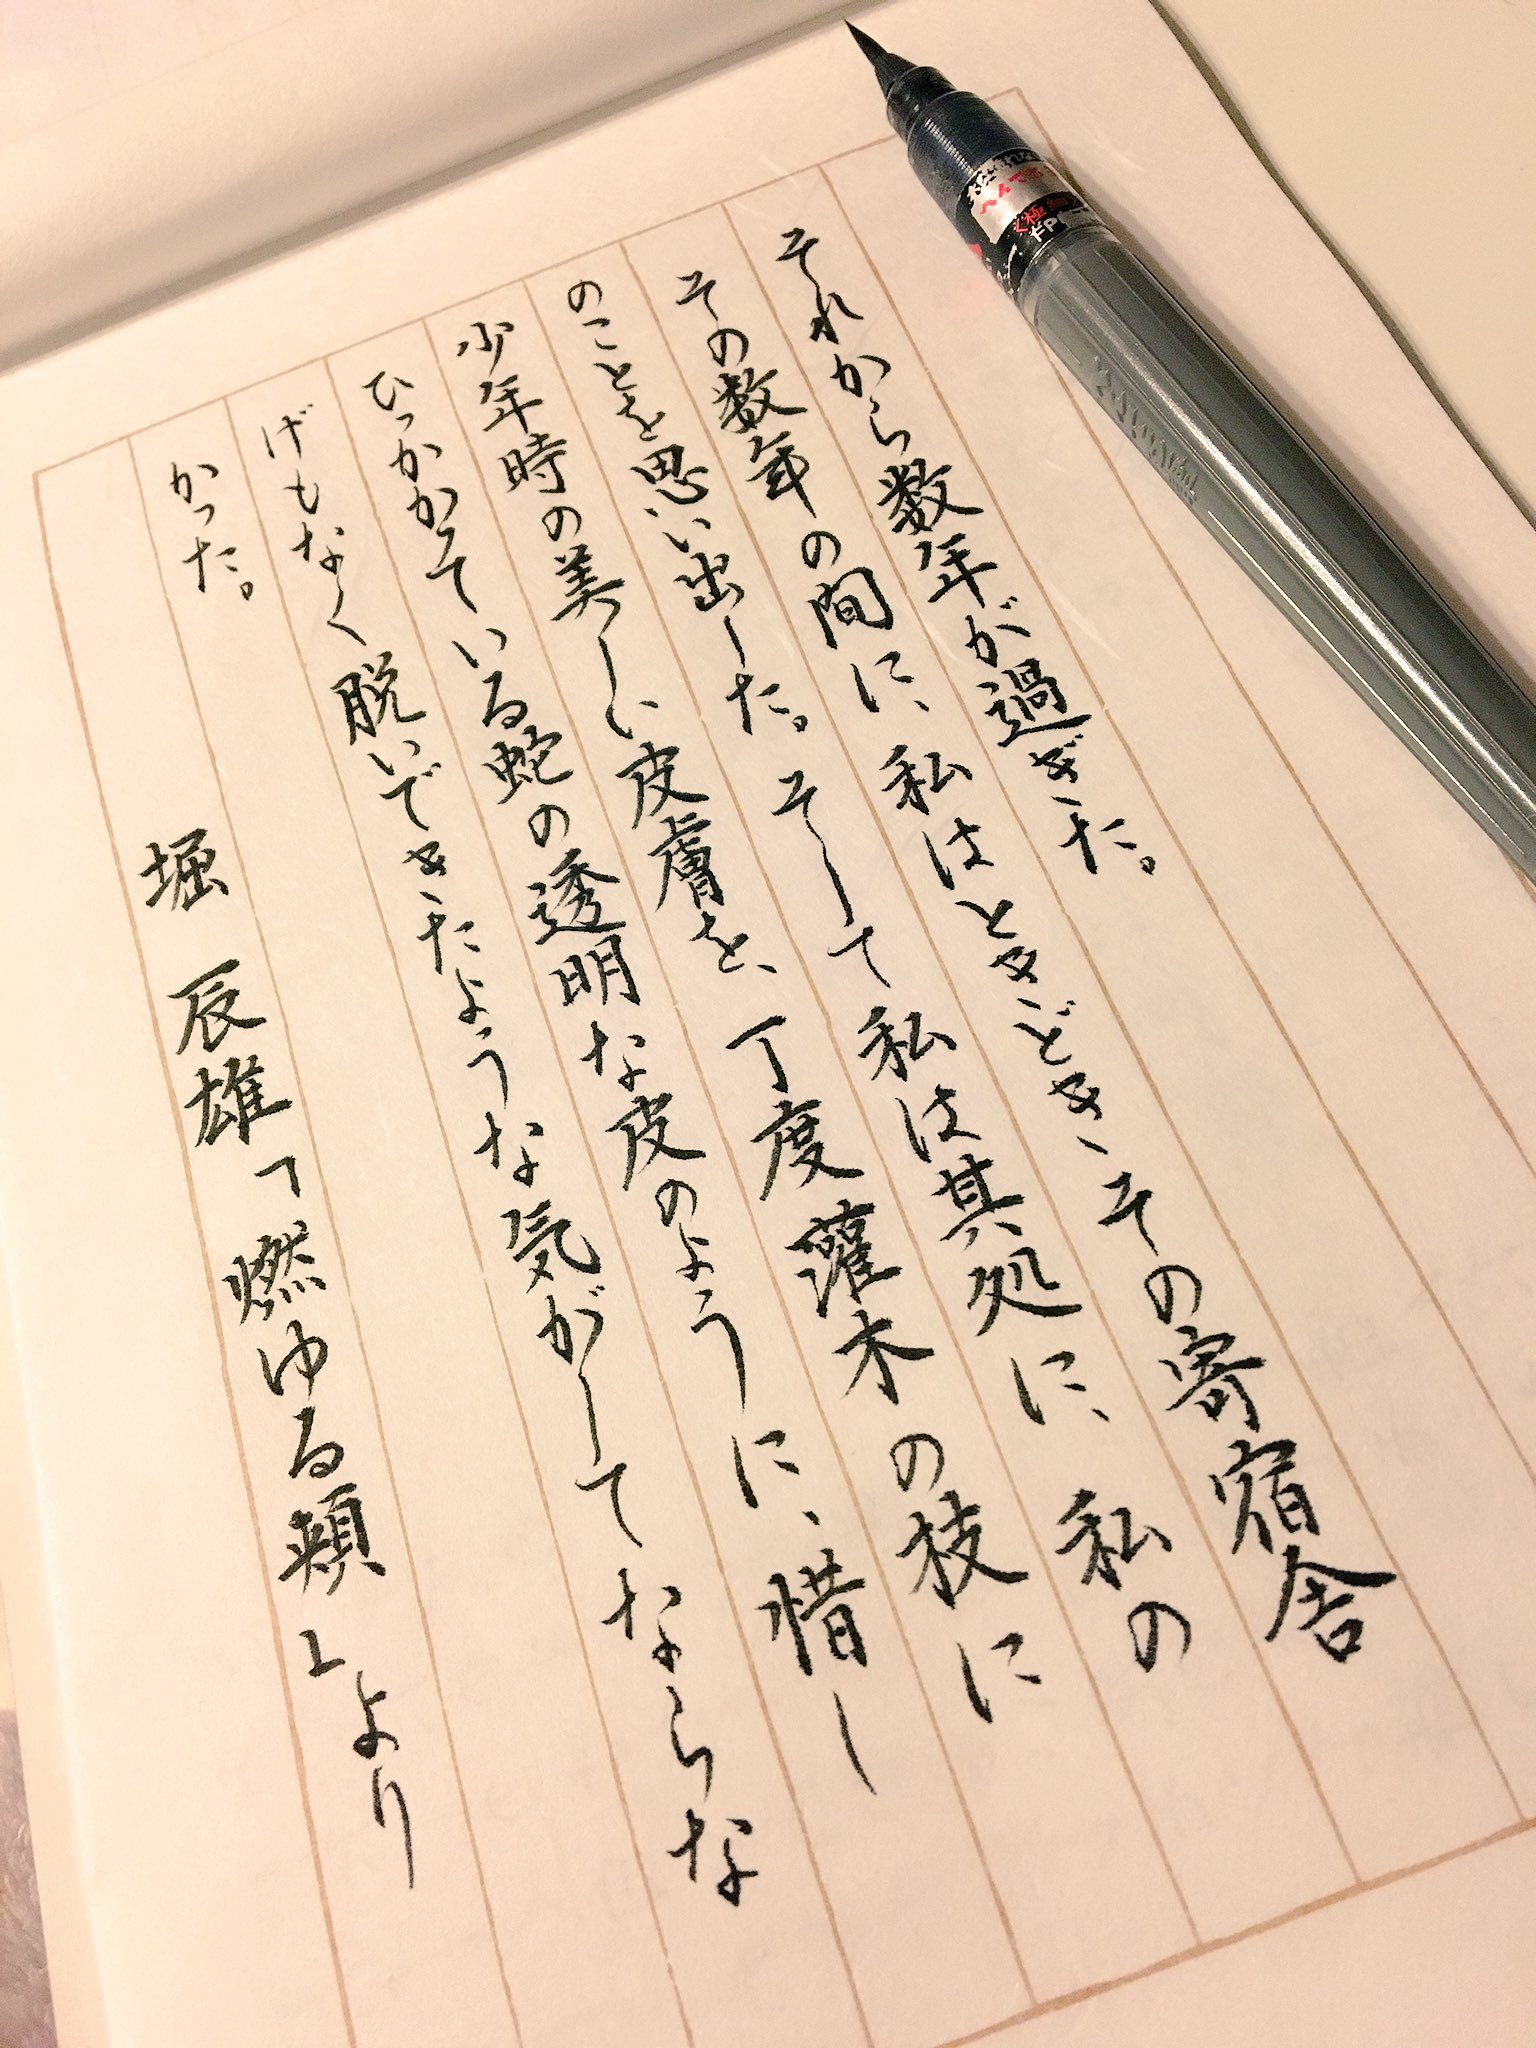 それから数年が過ぎた。
その数年の間に、私はときどきその寄宿舎
のことを思い出した。そして私は其処に、私の
少年時の美しい皮膚を、丁度灌木の枝に
ひっかかっている蛇の透明な皮のように、惜し
げもなく脱いできたような気がしてならな
かった。
堀 辰雄「燃ゆる頬」より